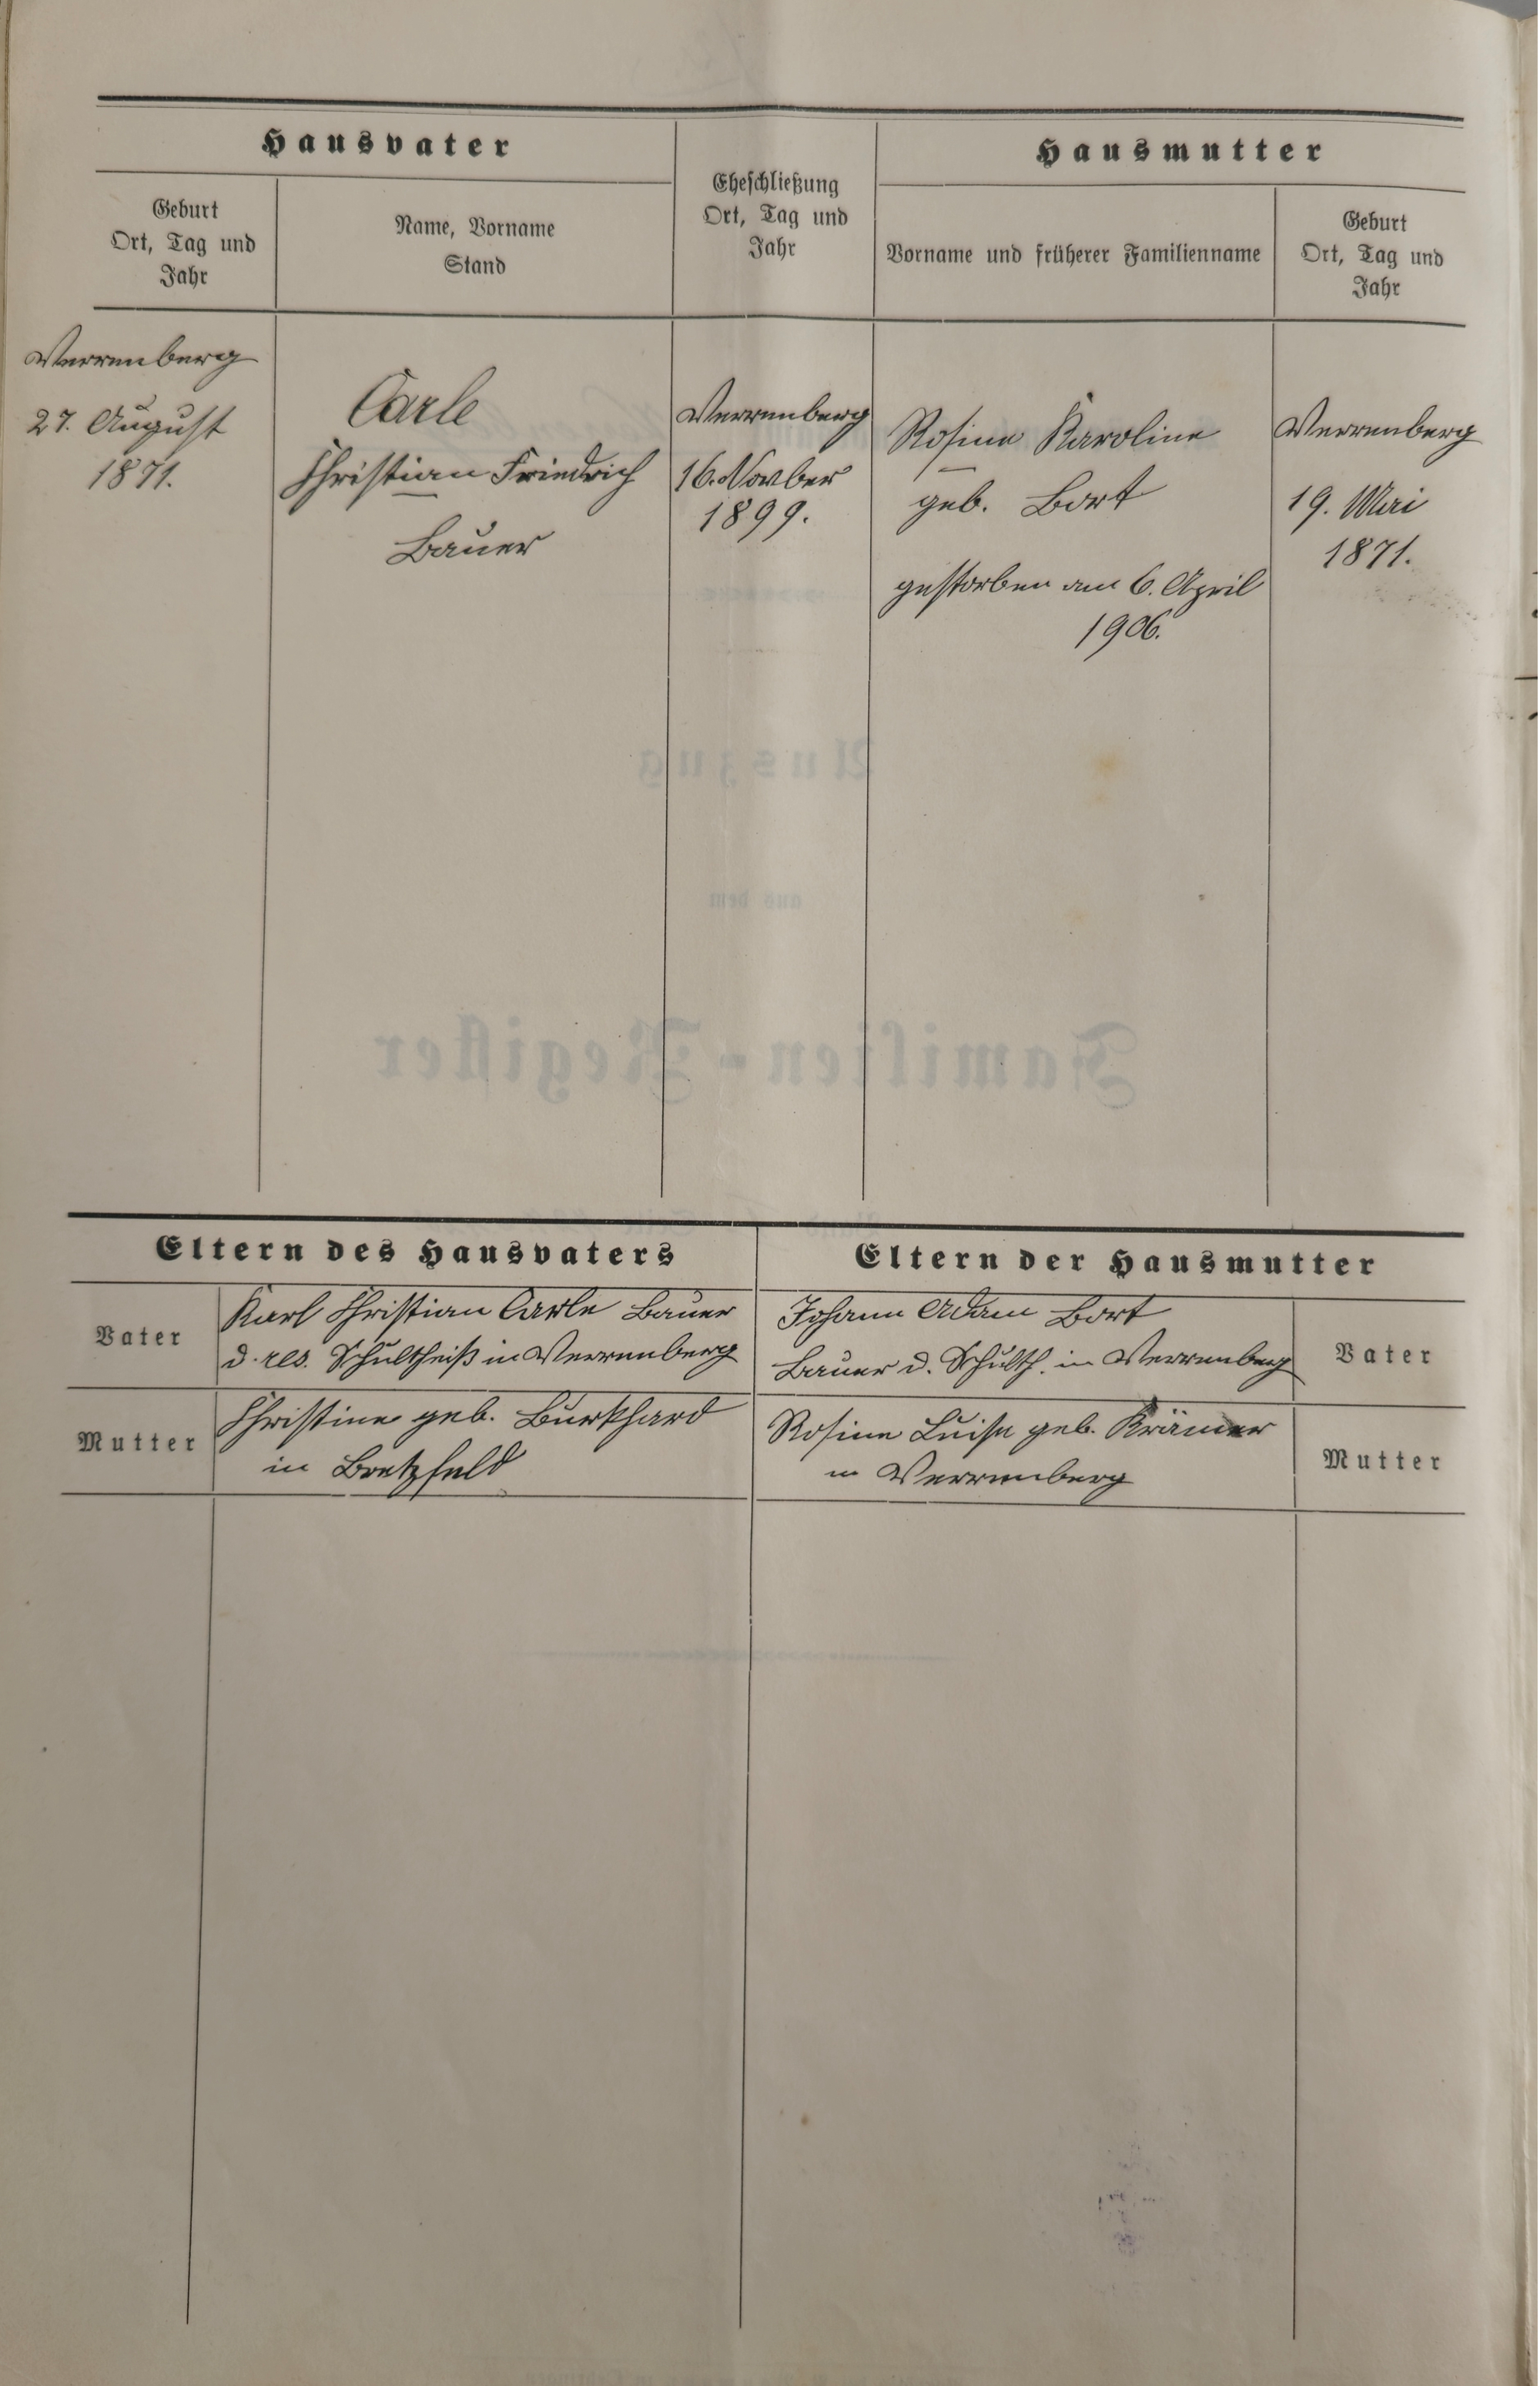 Hausvater
Geburt
Ort, Tag und
Jahr
Name, Vorname
Stand
Eheschließung
Ort, Tag und
Jahr
Hausmutter
Vorname und früherer Familienname
Geburt
Ort, Tag und
Jahr
Verrenberg
27. August
1871.
Carle
Christian Friedrich
Bauer
Verrenberg
16. Novber
1899.
Rosine Karoline
geb. Bort
gestorben am 6. April
1906.
Verrenberg
19. Mai
1871.
Auszug
aus dem
Familien-Register
Eltern des Hausvaters
Eltern der Hausmutter
Vater
Karl Christian Carle Bauer
d. res. Schultheiß in Verrenberg
Johann Adam Bort
Bauer d. Schulth. in Verrenberg
Vater
Mutter
Christine geb. Burkhard
in Bretzfeld
Rosine Luise geb. Krämer
in Verrenberg
Mutter